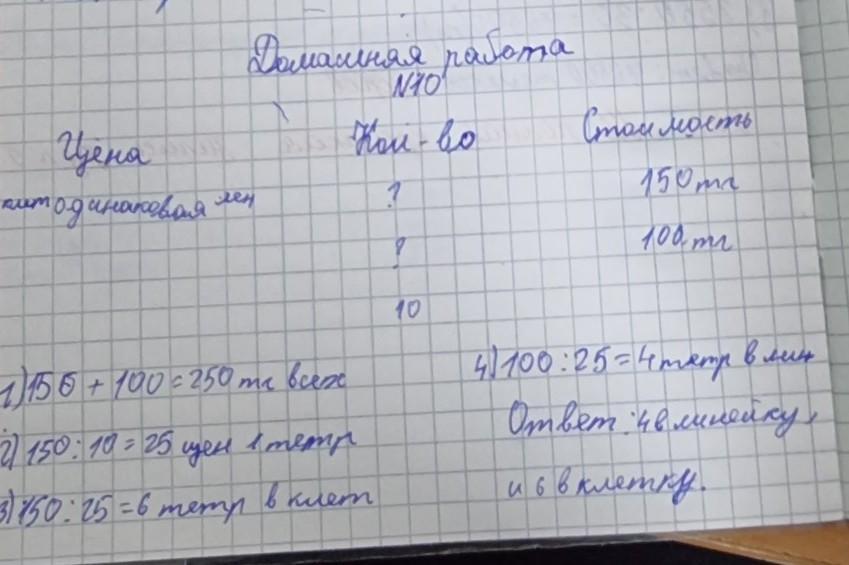 Домашняя работа
№10
Цена Кол-во Стоимость
одинаковая ? 150 тг
? 100 тг
10
1) 150 + 100 = 250 тг всех
2) 150 : 10 = 25 цен 1 тетр
3) 150 : 25 = 6 тетр в клет
4) 100 : 25 = 4 тетр в лин
Ответ: 4 в линейку,
и 6 в клетку.